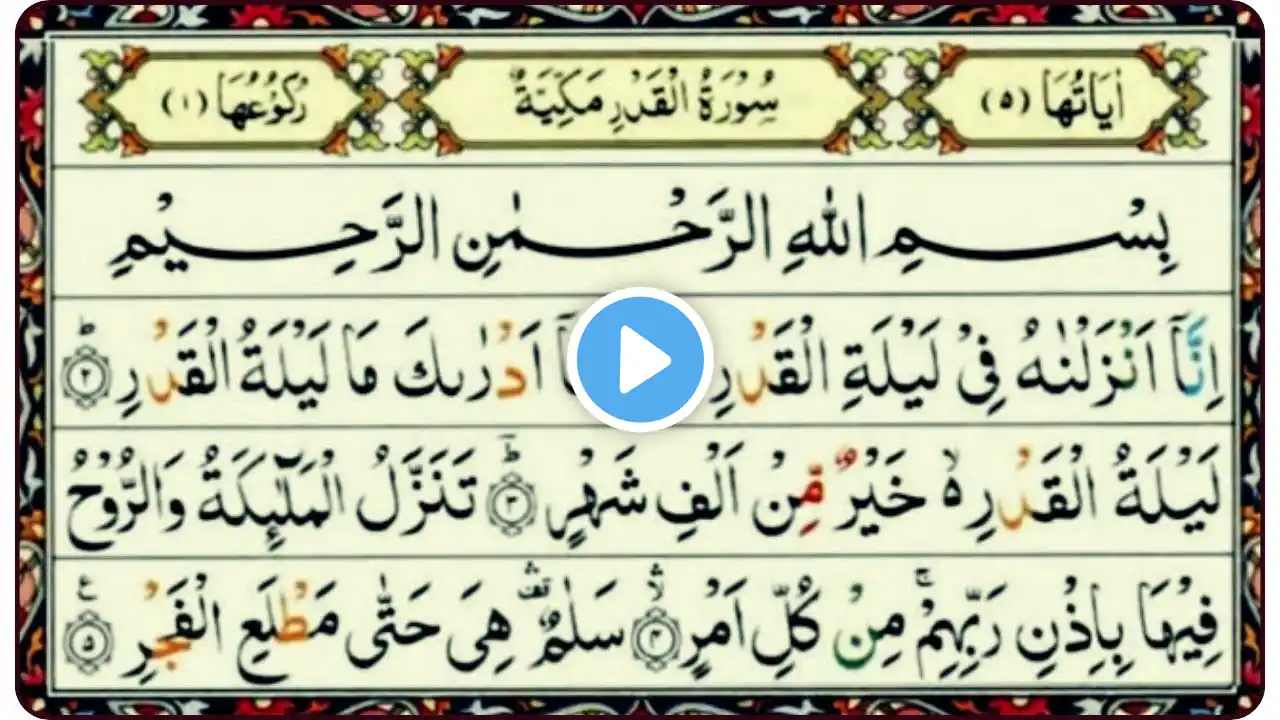 اٰيَاتُهَا (٥) سُوْرَةُ الْقَدْرِ مَكِّيَّةٌ رُكُوْعُهَا (١)
بِسْمِ اللّٰهِ الرَّحْمٰنِ الرَّحِيْمِ
اِنَّآ اَنْزَلْنٰهُ فِيْ لَيْلَةِ الْقَدْرِ اَدْرٰىكَ مَا لَيْلَةُ الْقَدْرِ ؕ ٢
لَيْلَةُ الْقَدْرِ ۙ خَيْرٌ مِّنْ اَلْفِ شَهْرٍ ؕ ٣ تَنَزَّلُ الْمَلٰٓئِكَةُ وَالرُّوْحُ
فِيْهَا بِاِذْنِ رَبِّهِمْ ۚ مِنْ كُلِّ اَمْرٍ ۛ ٤ سَلٰمٌ ۛ هِيَ حَتّٰى مَطْلَعِ الْفَجْرِ ٥